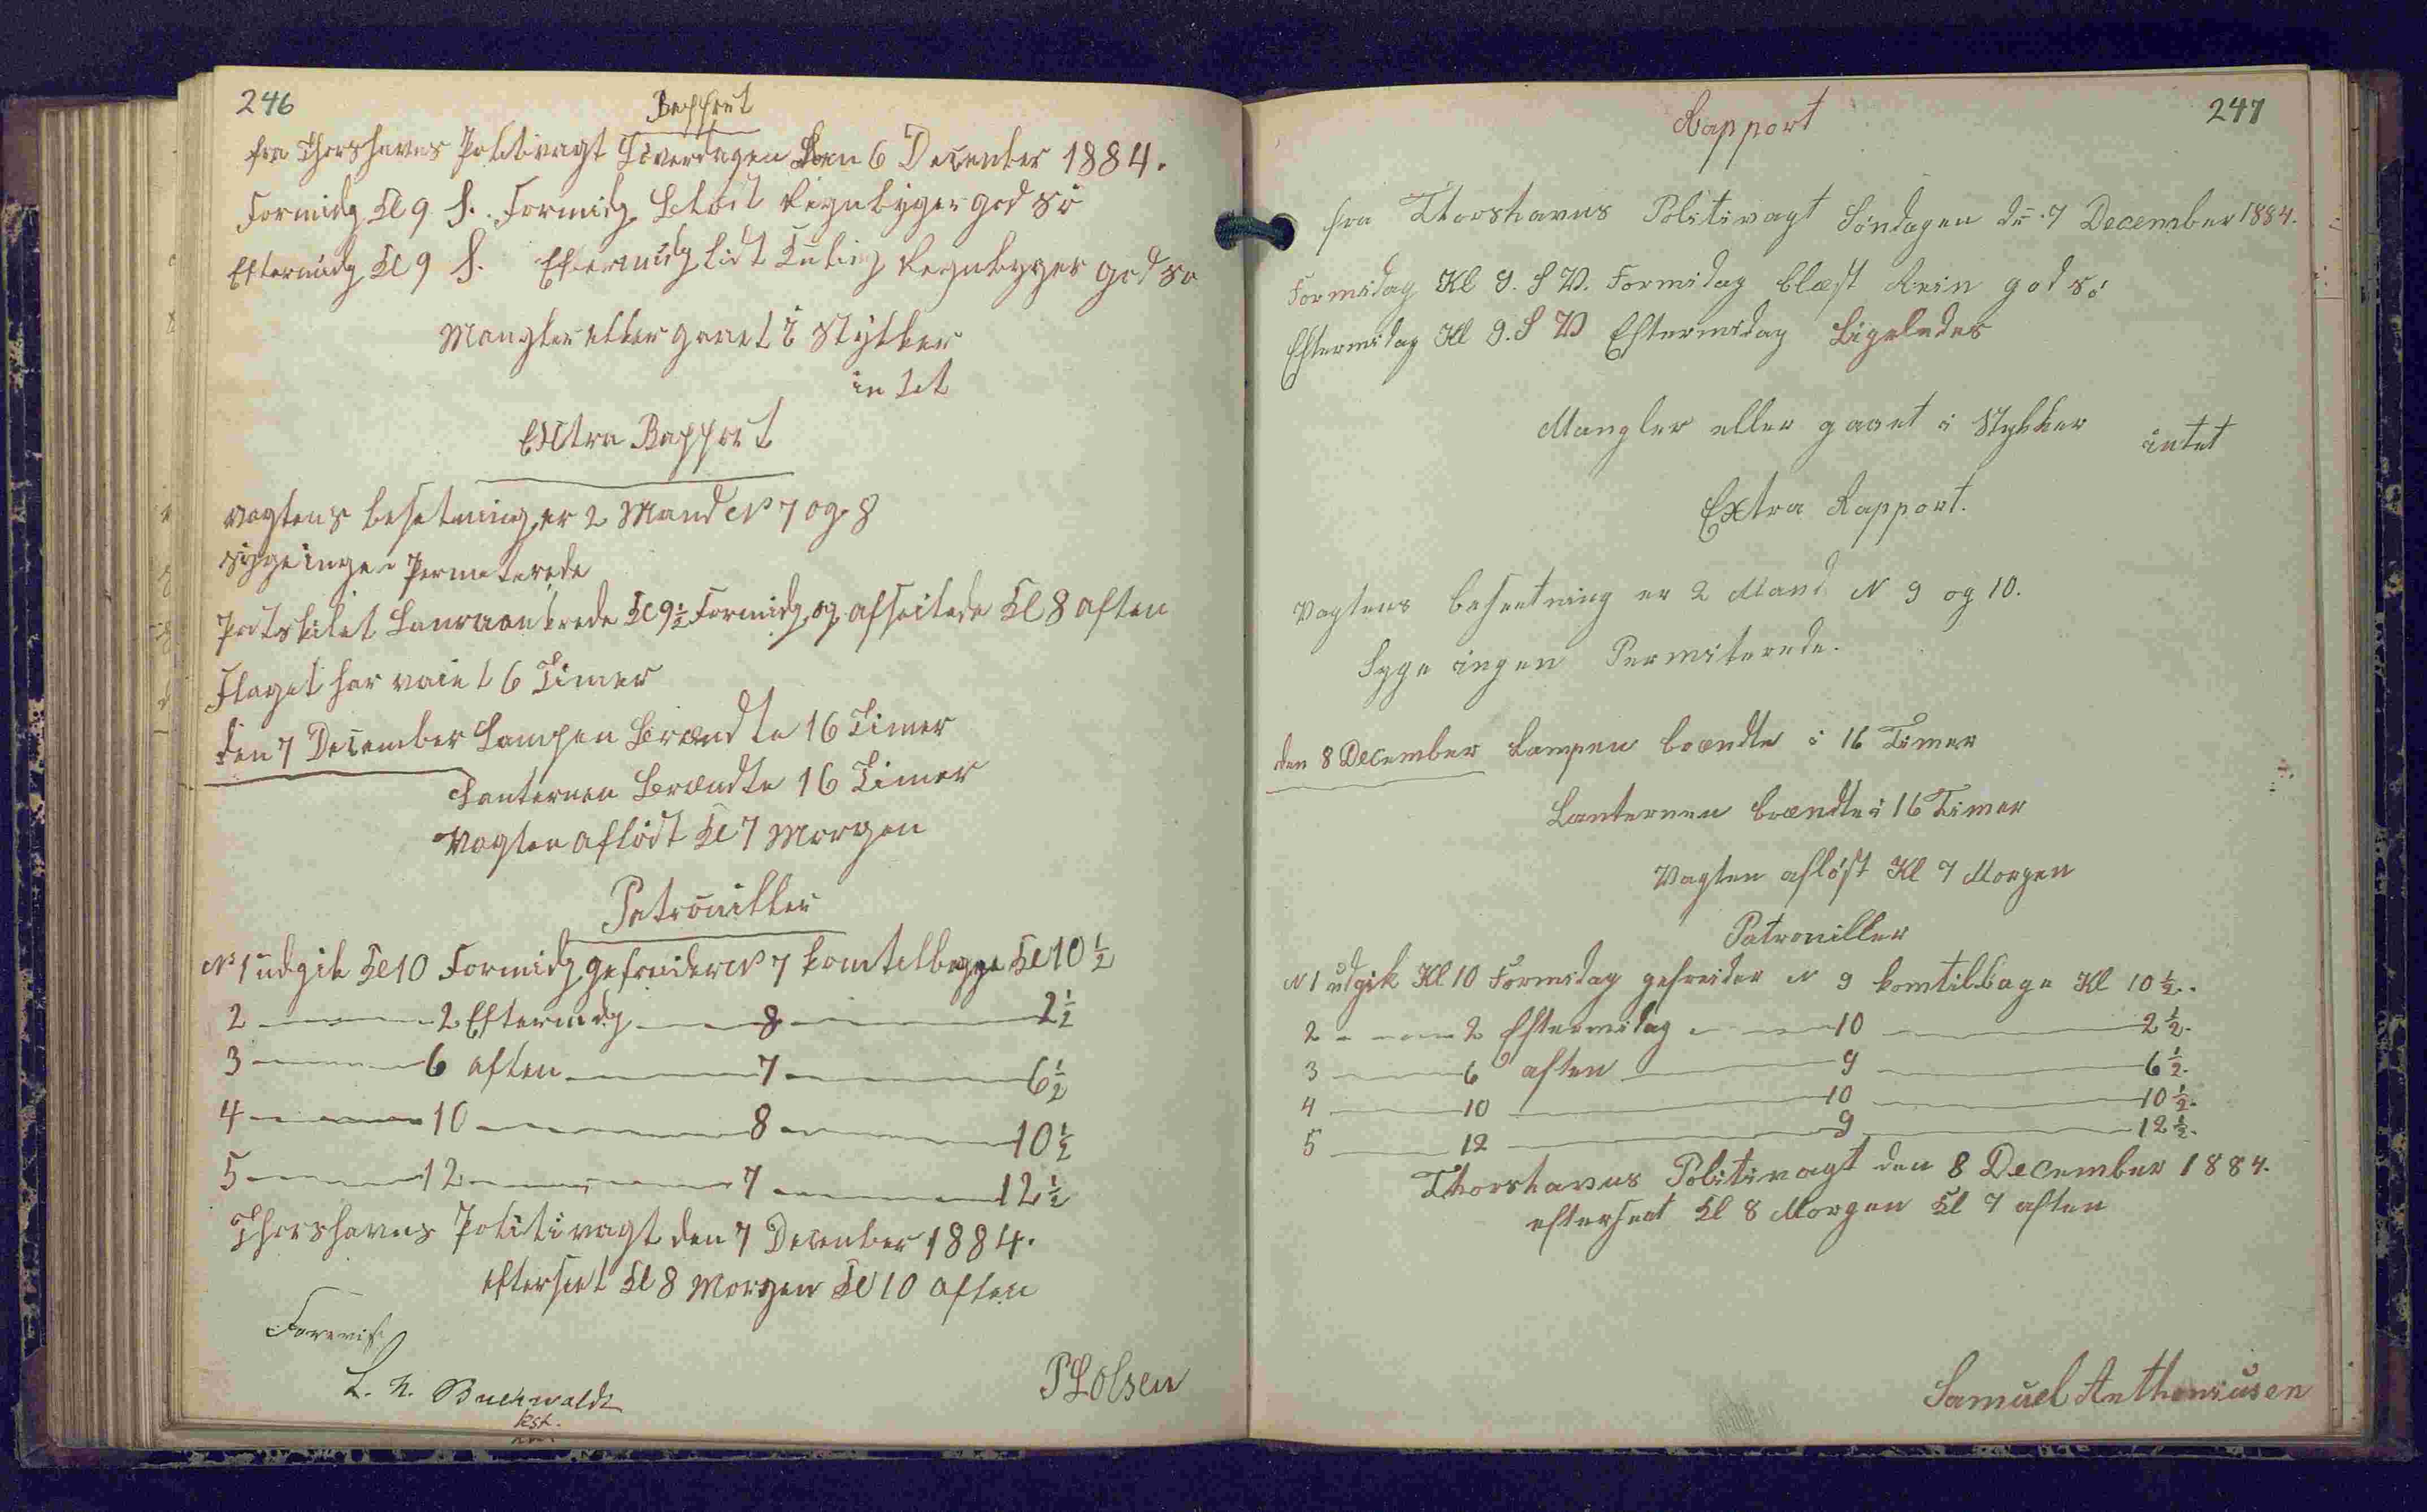 246
Rapport
fra Thorshavns Politivagt Löverdagen den 6 December 1884.
Formidg Kl 9 S. Formidg Regnbyger god Sö
Eftermidg Kl 9 S. Eftermidg lidt Regnbyger god Sö
Mangler eller gaaet i Stykker
intet
Extra Rapport
Vagtens besetning er 2 Mand N 7 og 8
Syge ingen Permeterede
Postskibet Laura ankrede Kl 9½ Formidg og afseilede Kl 8 aften
Flaget har vaiet 6 Timer
den 7 December Lampen Brændte 16 Timer
Lanternen Brændte 16 Timer
Vagten aflöst Kl 7 Morgen
Patrouiller
N 1 udgik Kl 10 Formidg gefreider N 7 kom Kl 10½
2 — 2 Eftermidg — 8 — 2½
3 — 6 aften — 7 — 6½
4 — 10 — 8 — 10½
5 — 12 — 7 — 12½
Thorshavns Politivagt den 7 December 1884.
efterseet Kl 8 Morgen Kl 10 aften
Forevist
L. N. Buchwaldt
P L Olsen
247
Rapport
fra Thorshavns Politivagt Söndagen dn 7 December 1884.
Formidag Kl 9. S V. Formidag blæst Rein god Sö
Eftermidag Kl 9. S V Eftermidag Ligeledes
Mangler eller gaaet i Stykker intet
Extra Rapport.
Vagtens besætning er 2 Mand N 9 og 10.
Syge ingen Permiterede.
den 8 December Lampen brændte i 16 Timer
Lanternen brændte i 16 Timer
Vagten aflöst Kl 7 Morgen
Patrouiller
N 1 udgik Kl 10 Formidag gefreider N 9 kom tilbage Kl 10½.
2 — 2 Eftermidag — 10 — 2½.
3 — 6 aften — 9 — 6½.
4 — 10 — 10 — 10½.
5 — 12 — 9 — 12½.
Thorshavns Politivagt den 8 December 1884.
efterseet Kl 8 Morgen Kl 7 aften
Samuel Anthoniusen